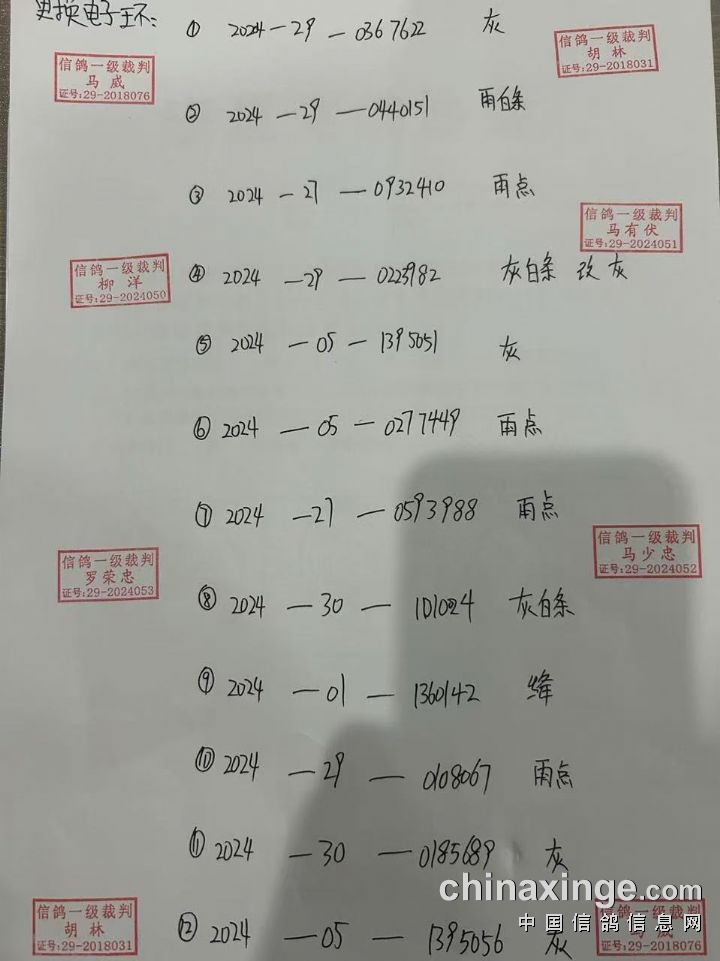 更换电子环:
① 2024—29—0367622 灰
信鸽一级裁判
胡 林
证号:29-2018031
信鸽一级裁判
马 威
证号:29-2018076
② 2024—29—0440151 雨白条
③ 2024—27—0932410 雨点
信鸽一级裁判
马有伏
证号:29-2024051
信鸽一级裁判
柳 洋
证号:29-2024050
④ 2024—29—0223982 灰白条 改灰
⑤ 2024—05—1395051 灰
⑥ 2024—05—0277449 雨点
⑦ 2024—27—0593988 雨点
信鸽一级裁判
马少忠
证号:29-2024052
信鸽一级裁判
罗荣忠
证号:29-2024053
⑧ 2024—30—101024 灰白条
⑨ 2024—01—1360142 绛
⑩ 2024—29—0108067 雨点
⑪ 2024—30—0185689 灰
chinaxinge.com
中国信鸽信息网
信鸽一级裁判
胡 林
证号:29-2018031
⑫ 2024—05—1395056 灰
信鸽一级裁判
马 威
证号:29-2018076